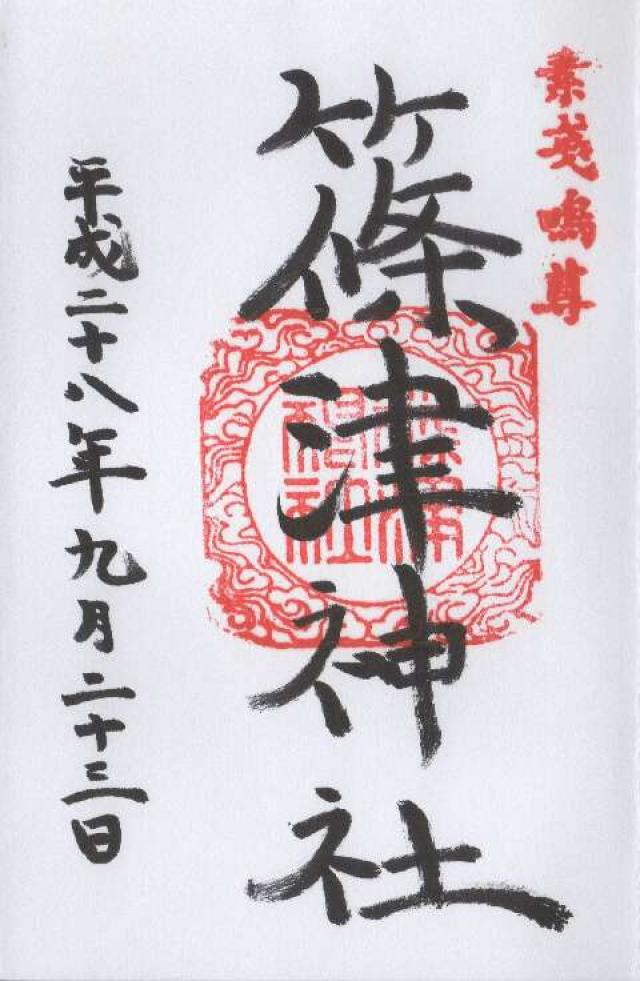 素戔嗚尊
篠津神社
平成二十八年九月二十三日